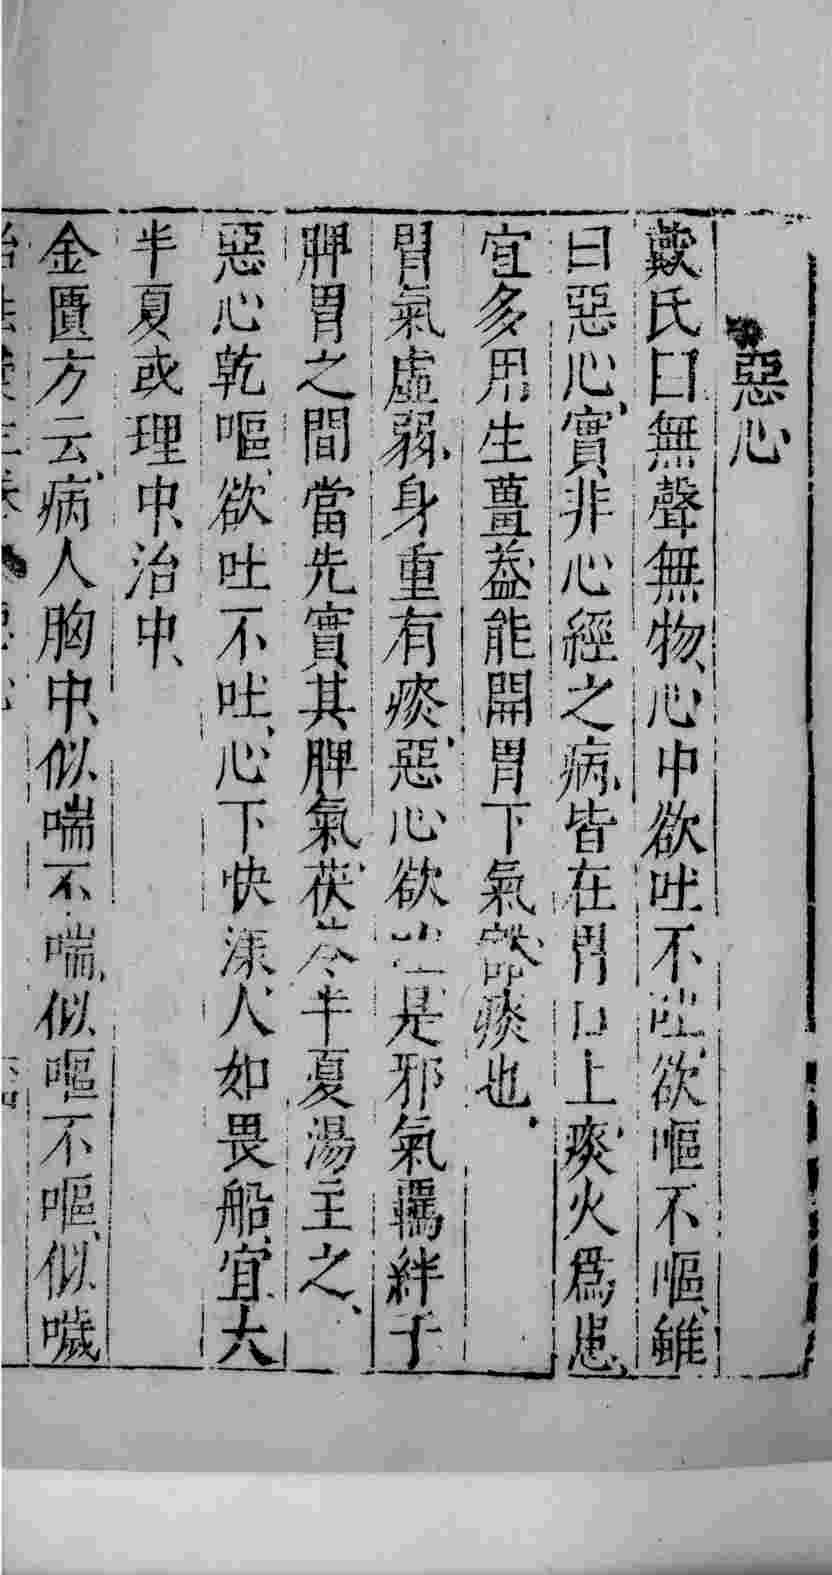 惡心
戴氏曰無聲無物、心中欲吐不吐、欲嘔不嘔、雖
曰惡心、實非心經之病、皆在胃口上、痰火爲患、
宜多用生薑、葢能開胃下氣、豁痰也、
胃氣虛弱、身重有痰、惡心欲吐、是邪氣羈絆于
脾胃之間、當先實其脾氣、茯苓半夏湯主之、
惡心乾嘔、欲吐不吐、心下怏漾、人如畏船、宜大
半夏或理中、治中、
金匱方云、病人胸中、似喘不喘、似嘔不嘔、似噦